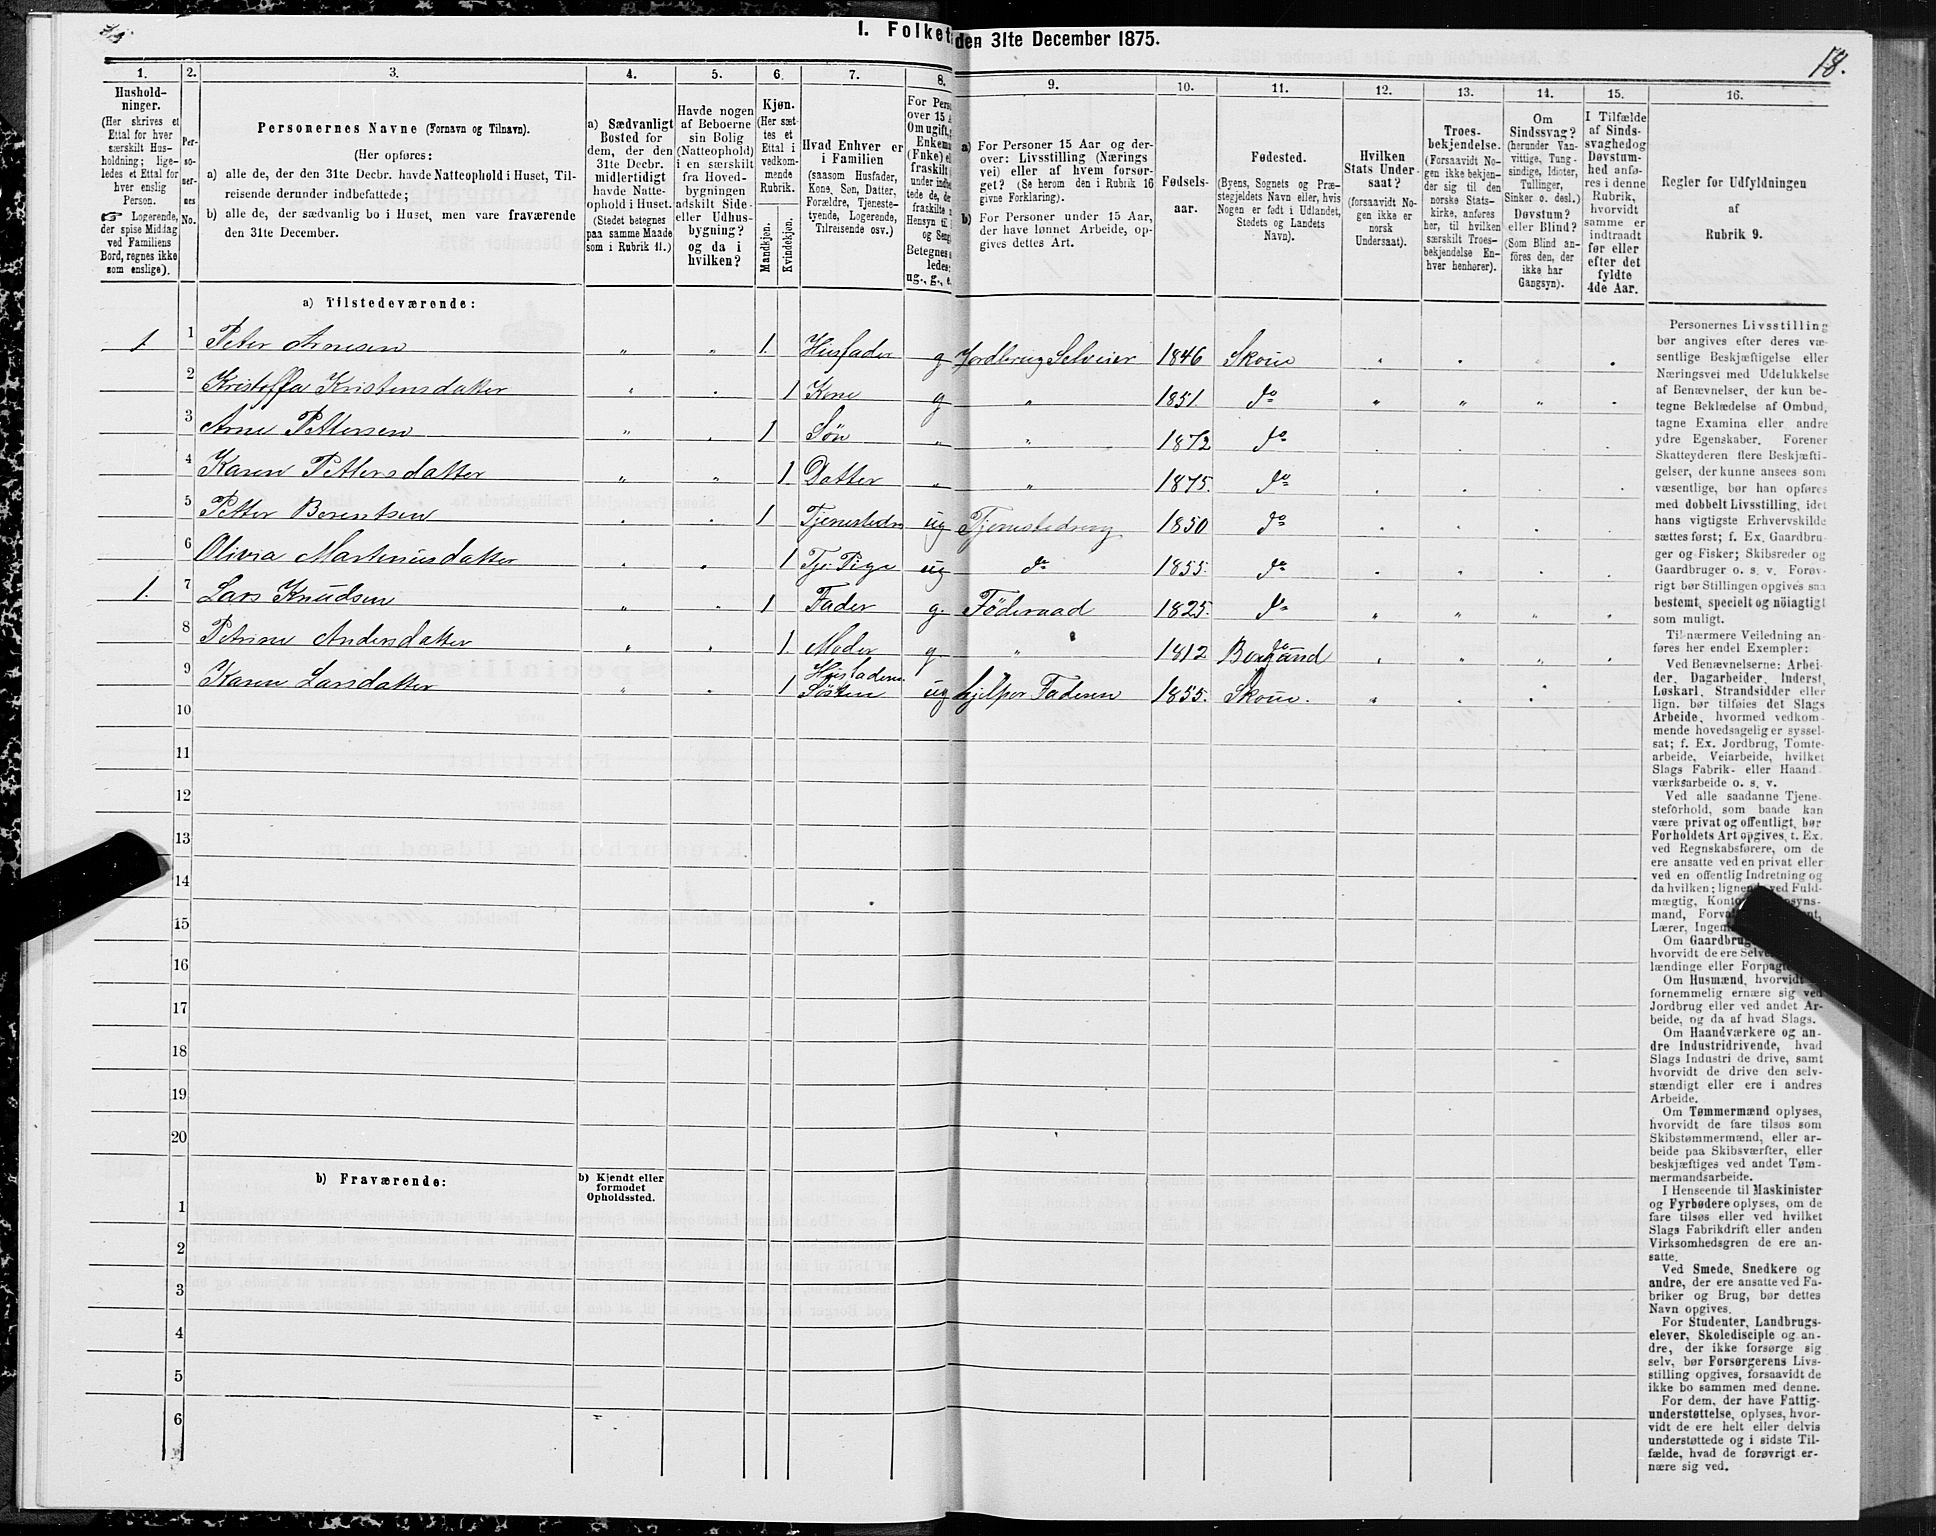 1. Folket den 31te December 1875.
18.
1. 2. 3. 4. 5. 6. 7. 8. 9. 10. 11. 12. 13. 14. 15. 16.
Hushold-
ninger.
(Her skrives et
Ettal for hver
særskilt Hus-
holdning; lige-
ledes et Ettal for
hver enslig
Person.
☞ Logerende,
der spise Middag
ved Familiens
Bord, regnes ikke
som enslige).
Per-
so-
ner-
nes
No.
Personernes Navne (Fornavn og Tilnavn).
(Her opføres:
a) alle de, der den 31te Decbr. havde Natteophold i Huset, Til-
reisende derunder indbefattede;
b) alle de, der sædvanlig bo i Huset, men vare fraværende
den 31te December.
a) Sædvanligt
Bosted for
dem, der den
31te Decbr.
midlertidigt
havde Natte-
ophold i Huset.
(Stedet betegnes
paa samme Maade
som i Rubrik 11.)
Havde nogen
af Beboerne
sin Bolig
(Natteophold)
i en særskilt
fra Hoved-
bygningen
adskilt Side-
eller Udhus-
bygning?
og da i
hvilken?
Kjøn.
(Her sæt-
tes et
Ettal i
vedkom-
mende
Rubrik.
Mandkjøn.
Kvindekjøn.
Hvad Enhver er
i Familien
(saasom Husfader,
Kone, Søn, Datter,
Forældre, Tjeneste-
tyende, Logerende,
Tilreisende osv.)
For Pers
over 15 A
Om ugift,
Enkem
(Fnke) el
fraskilt
under indbe
tede de, de
fraskilte
Hensyn til
og Seng
Betegnes
ledes:
ug., g., e.
a) For Personer 15 Aar og der-
over: Livsstilling (Nærings
vei) eller af hvem forsør-
get? (Se herom den i Rubrik 16
givne Forklaring).
b) For Personer under 15 Aar,
der have lønnet Arbeide, op-
gives dettes Art.
Fødsels-
aar.
Fødested.
(Byens, Sognets og Præ-
stegjeldets Navn eller, hvis
Nogen er født i Udlandet,
Stedets og Landets
Navn).
Hvilken
Stats Under-
saat?
(forsaavidt No-
gen ikke er
norsk
Undersaat).
Troes-
bekjendelse.
(Forsaavidt No-
gen ikke bekjen-
der sig til den
norske Stats-
kirke, anføres
her, til hvilken
særskilt Troes-
bekjendelse En-
hver henhører).
Om
Sindssvag?
(herunder Van-
vittige, Tung-
sindige, Idioter,
Tullinger,
Sinker o. desl.)
Døvstum?
eller Blind?
(Som Blind an-
føres den, der
ikke har
Gangsyn).
I Tilfælde
af Sinds-
svaghed og
Døvstum-
hed anfø-
res i denne
Rubrik,
hvorvidt
samme er
indtraadt
før eller
efter det
fyldte
4de Aar.
Regler for Udfyldningen
af
Rubrik 9.
a) Tilstedeværende:
1 1 Peter Arnesen " " 1. Husfader g Jordbrug Selveier 1846 Skoue
2 Kristoffa Kristensdatter " " 1 Kone g " 1851. do
3 Arne Pettersen " " 1 Søn " " 1872 do
4 Karen Pettersdatter " " 1 Datter " " 1875. do
5 Petter Berentsen " " 1 Tjenestedr ug Tjenestedreng 1850 do
6 Olivia Martinusdatter " " 1 Tj. Pige ug do 1855. do
1. 7 Lars Knudsen " " 1 Fader g. Föderaad 1825. do
8 Petrine Andersdatter " " 1. Moder g " 1812 Borgund
9 Karen Larsdatter " " 1 Husfaderns Søster ug hjelper Faderen 1855. Skoue.
10
11
12
13
14
15
16
17
18
19
20
b) Fraværende:
b) Kjendt eller
formodet
Opholdssted.
1
2
3
4
5
6
Personernes Livsstilling
bør angives efter deres væ-
sentlige Beskjæftigelse eller
Næringsvei med Udelukkelse
af Benævnelser, der kun be-
tegne Beklædelse af Ombud,
tagne Examina eller andre
ydre Egenskaber. Forener
Skatteyderen flere Beskjæfti-
gelser, der kunne ansees som
væsentlige, bør han opføres
med dobbelt Livsstilling, idet
hans vigtigste Erhvervskilde
sættes først; f. Ex. Gaardbru-
ger og Fisker; Skibsreder og
Gaardbruger o. s. v. Forøv-
rigt bør Stillingen opgives saa
bestemt, specielt og nöiagtigt
som muligt.
Til nærmere Veiledning an-
føres her endel Exempler:
Ved Benævnelserne: Arbei-
der, Dagarbeider, Inderst,
Løskarl, Strandsidder eller
lign. bør tilføies det Slags
Arbeide, hvormed vedkom-
mende hovedsagelig er syssel-
sat; f. Ex. Jordbrug, Tomte-
arbeide, Veiarbeide, hvilket
Slags Fabrik- eller Haand
værksarbeide o. s. v.
Ved alle saadanne Tjene-
steforhold, som baade kan
være privat og offentligt, bør
Forholdets Art opgives, t. Ex.
ved Regnskabsførere, om de
ere ansatte ved en privat eller
ved en offentlig Indretning og
da hvilken; lignende ved Fuld-
mægtig, Konto psyns-
mand, Forva nt,
Lærer, Ingeni
Om Gaardbrug
hvorvidt de ere Selve
lændinge eller Forpagte
Om Husmænd, hvorvidt
fornemmelig ernære sig ved
Jordbrug eller ved andet Ar-
beide, og da af hvad Slags.
Om Haandværkere og an-
dre Industridrivende, hvad
Slags Industri de drive, samt
hvorvidt de drive den selv-
stændigt eller ere i andres
Arbeide.
Om Tømmermænd oplyses,
hvorvidt de fare tilsøs som
Skibstømmermænd, eller ar-
beide paa Skibsværfter, eller
beskjæftiges ved andet Tøm-
mermandsarbeide.
I Henseende til Maskinister
og Fyrbødere oplyses, om de
fare tilsøs eller ved hvilket
Slags Fabrikdrift eller anden
Virksomhedsgren de ere an-
satte.
Ved Smede, Snedkere og
andre, der ere ansatte ved Fa-
briker og Brug, bør dettes
Navn opgives.
For Studenter, Landbrugs-
elever, Skoledisciple og an-
dre, der ikke forsørge sig
selv, bør Forsørgerens Livs-
stilling opgives, forsaavidt de
ikke bo sammen med denne.
For dem, der have Fattig-
understøttelse, oplyses, hvor-
vidt de ere helt eller delvis
understøttede og i sidste Til-
fælde, hvad de forøvrigt er-
nære sig ved.